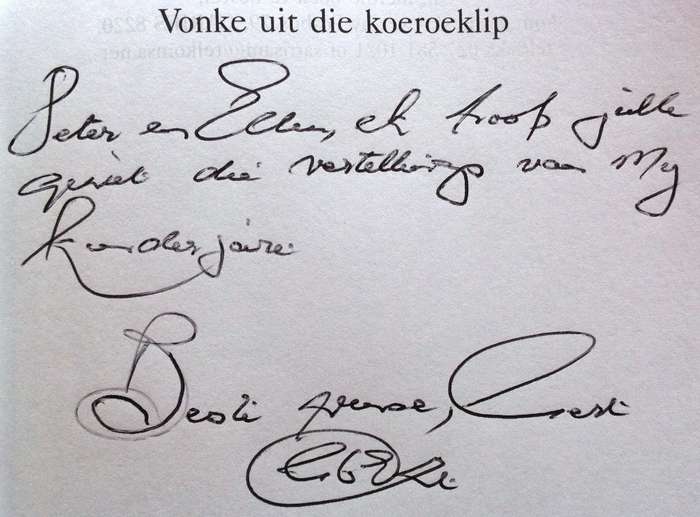 Vonke uit die koeroeklip
Peter en Ellen, ek hoop julle
geniet die vertellings van my
kinderjare
Beste groete,